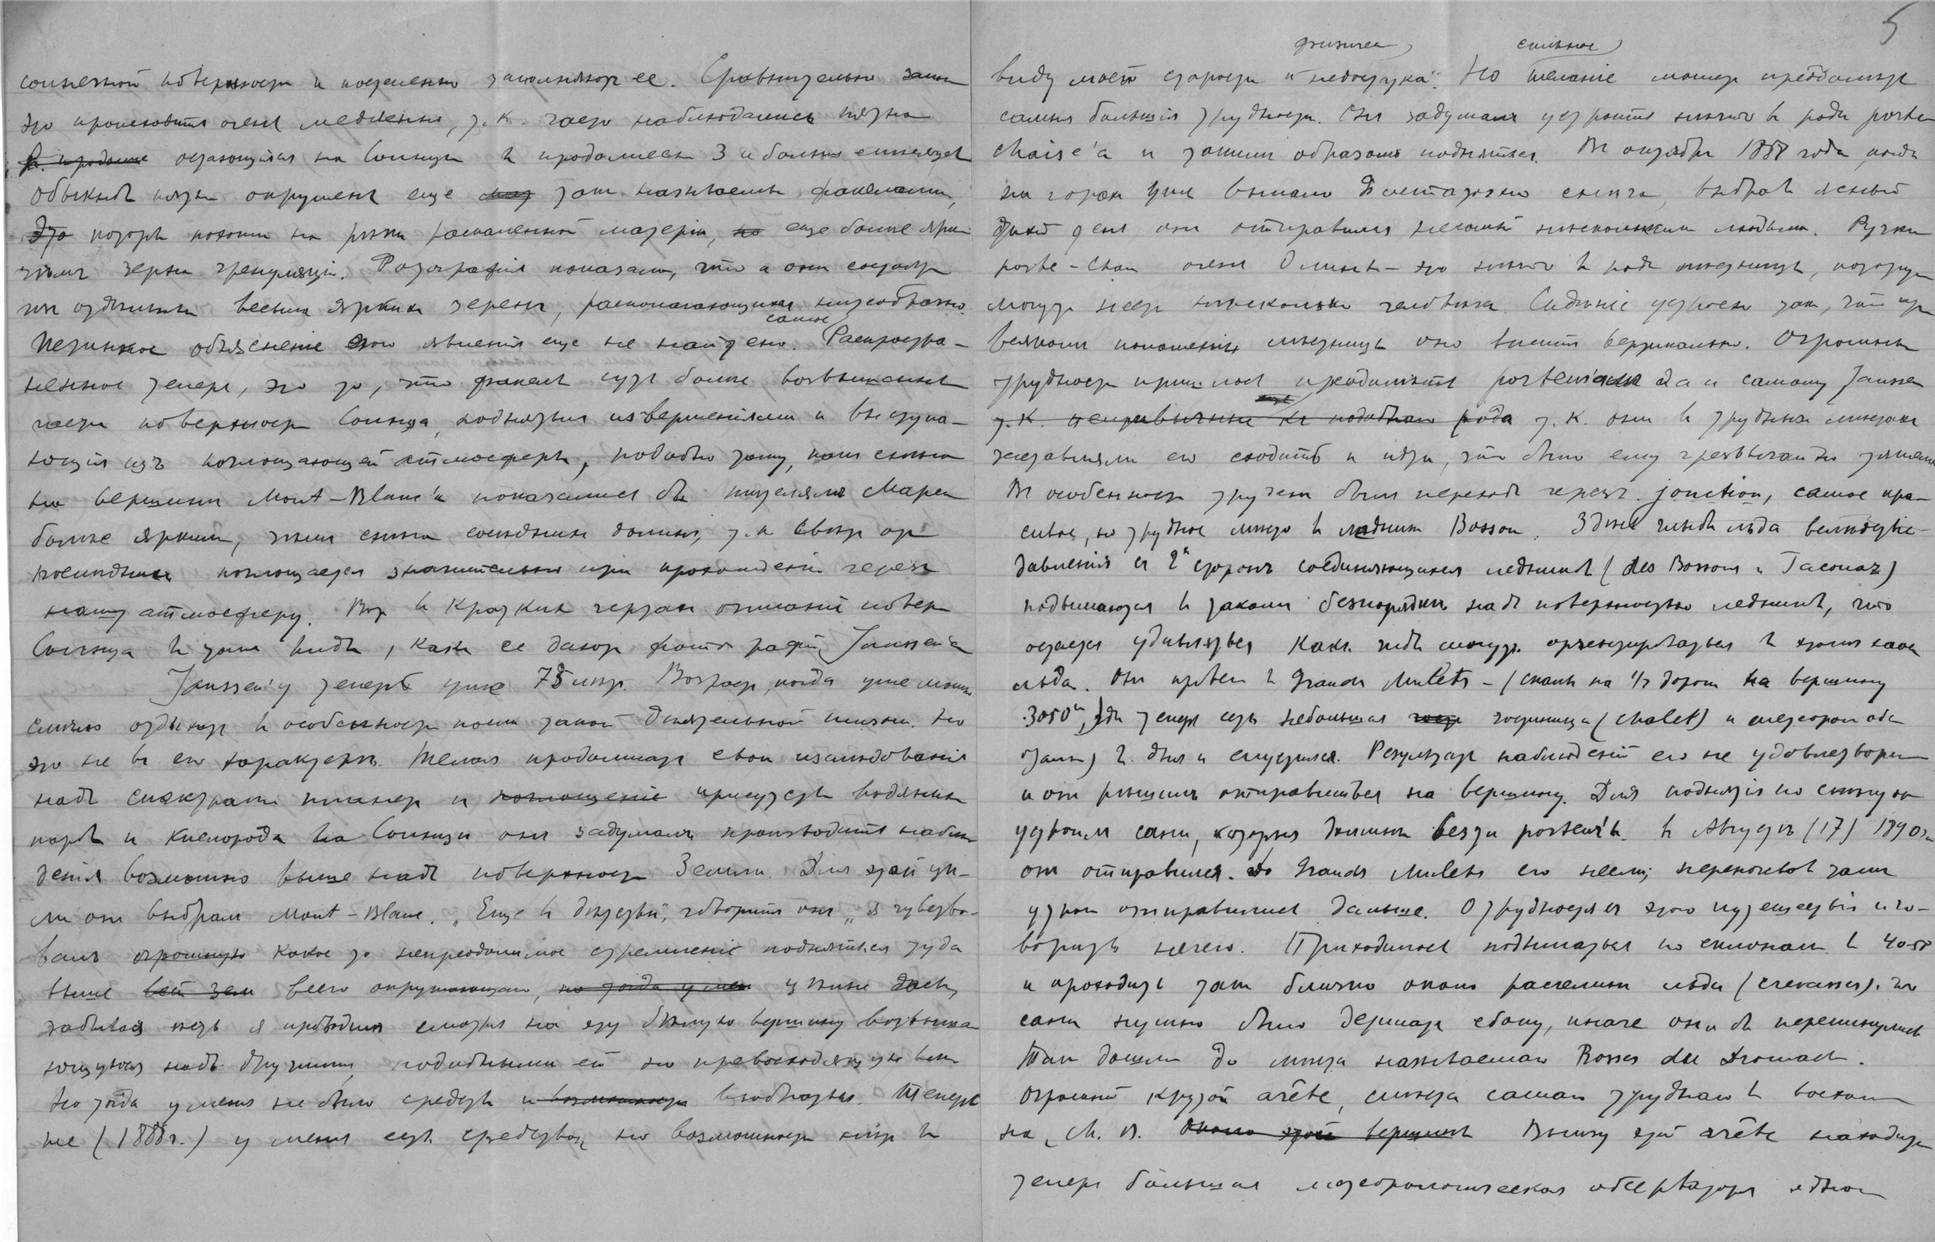 солнечной поверхности и постепенно заполняют ее. Сравнительно
это происходит очень медленно, т.к. часто наблюдались пятна
остающіяся на Солнце в продолжен 3 и больше
Обыкнов пятна окружены еще так называемы факелами,
Это которые похожи на раскаленной матеріи, но еще более ярки
чѣмъ зерна грануляціи. Фотографія показала, что и они состоят
изъ отдѣльныхъ весьма яркихъ зеренъ, располагающихся
объясненіе этого явленія еще не найдено. Самое Распростра-
ненное теперь, это то, что факелы суть болѣе возвышенныя
части поверхности Солнца, поднятыя изверженіями и выступа-
ющія изъ поглощающей атмосферы, подобно тому, какъ снѣга
на вершинѣ Mont-Blanc'а показались бы жителямъ Марса
болѣе яркими, чѣмъ снѣга сосѣднихъ долинъ, т.к свѣтъ от
послѣднихъ поглощается значительно при прохожденіи через
нашу атмосферу. Вот в кратких чертах описаніе поверх
Солнца в том видѣ, как ее дают фотографіи Janssen'а
Janssen'у теперь уже 75 лѣт. Возраст, когда уже можно
отдыхать в особенности послѣ такой дѣятельной жизни. Но
это не в его характерѣ. Желая продолжать свои изслѣдованія
надъ спектрами планет и поглощеніе присутств водяных
паров и кислорода на Солнцѣ онъ задумалъ производить наблю
денія возможно выше надъ поверхност Земли. Для этой цѣ-
ли он выбрал Mont-Blanc. „Еще в дѣтствѣ", говоритъ онъ „я чувство-
валъ огромную какое то непреодолимое стремленіе подняться туда
выше всей зем всего окружающаго, но тогда у меня
на эту бѣлую вершину возвыша
ющуюся надъ другими, подобными ей но превосходящую
Но тогда у меня не было средств и возможности взобраться. Теперь
же (1888 г.) у меня есть средства, но возможности нѣт в
5
физическ сильное
виду моей старости и „недостатка". Но желаніе может преодолѣть
самыя большія трудности. Он задумалъ устроить нѣчто в родѣ porte
chaise'а и таким образомъ подняться. В октябрѣ 1888 года, когда
на горах уже выпало достаточно снѣга, выбрав ясный
день он отправился с нѣсколькими людьми. Ручки
porte-chais очень длинны - это нѣчто в родѣ лѣстницы, которую
могут нести нѣсколько человѣк. Сидѣніе устроено так, что при
всяком положеніи лѣстницы оно виситъ вертикально. Огромныя
трудности пришлось преодолѣть porteur'ам да и самому Janssen
т.к. непривычные еще къ подобнаго рода т.к. они в трудных мѣстах
заставляли его сходить и идти, что было ему чрезвычайно тяжело
В особенности труден был переход через jonction, самое кра-
сивое, но трудное мѣсто в ледникѣ Bosson. Здѣсь глыбы льда вслѣдствіе
давленія с 2ˣ сторон соединяющихся ледников (des Bossons и Taconaz)
подымаются в таком безпорядкѣ надъ поверхностью ледников, что
остается удивляться какъ люди могут оріентироваться в этом хаосѣ
льда. Он провел в Grands Mulets - (скалы на 1/2 дорогѣ на вершину
3050ᵐ, гдѣ теперь есть небольшая гостиница (chalet) и метеоролог обс
Janss) 2. дня и спустился. Результат наблюденій его не удовлетворил
и он рѣшилъ отправиться на вершину. Для поднятія по снѣгу он
устроил сани, которыя должны везти porteur'ы. В Августѣ (17) 1890 г.
он отправился. До Grands Mulets его несли, переночевав там
утром отправились дальше. О трудностях этого путешествія и го-
ворить нечего. Приходилось подниматься по склонам в 40-50
и проходить так близко около разселин льда (crevasses), что
сани нужно было держать сбоку, иначе они бы перекинулись
Так дошли до мѣста называемаго Bosses du Dromad.
Огромный крутой arête, мѣста самаго труднаго в восхожд
на М. В. Около этой вершины Внизу этой arête находится
теперь большая метеорологическая обсерваторія